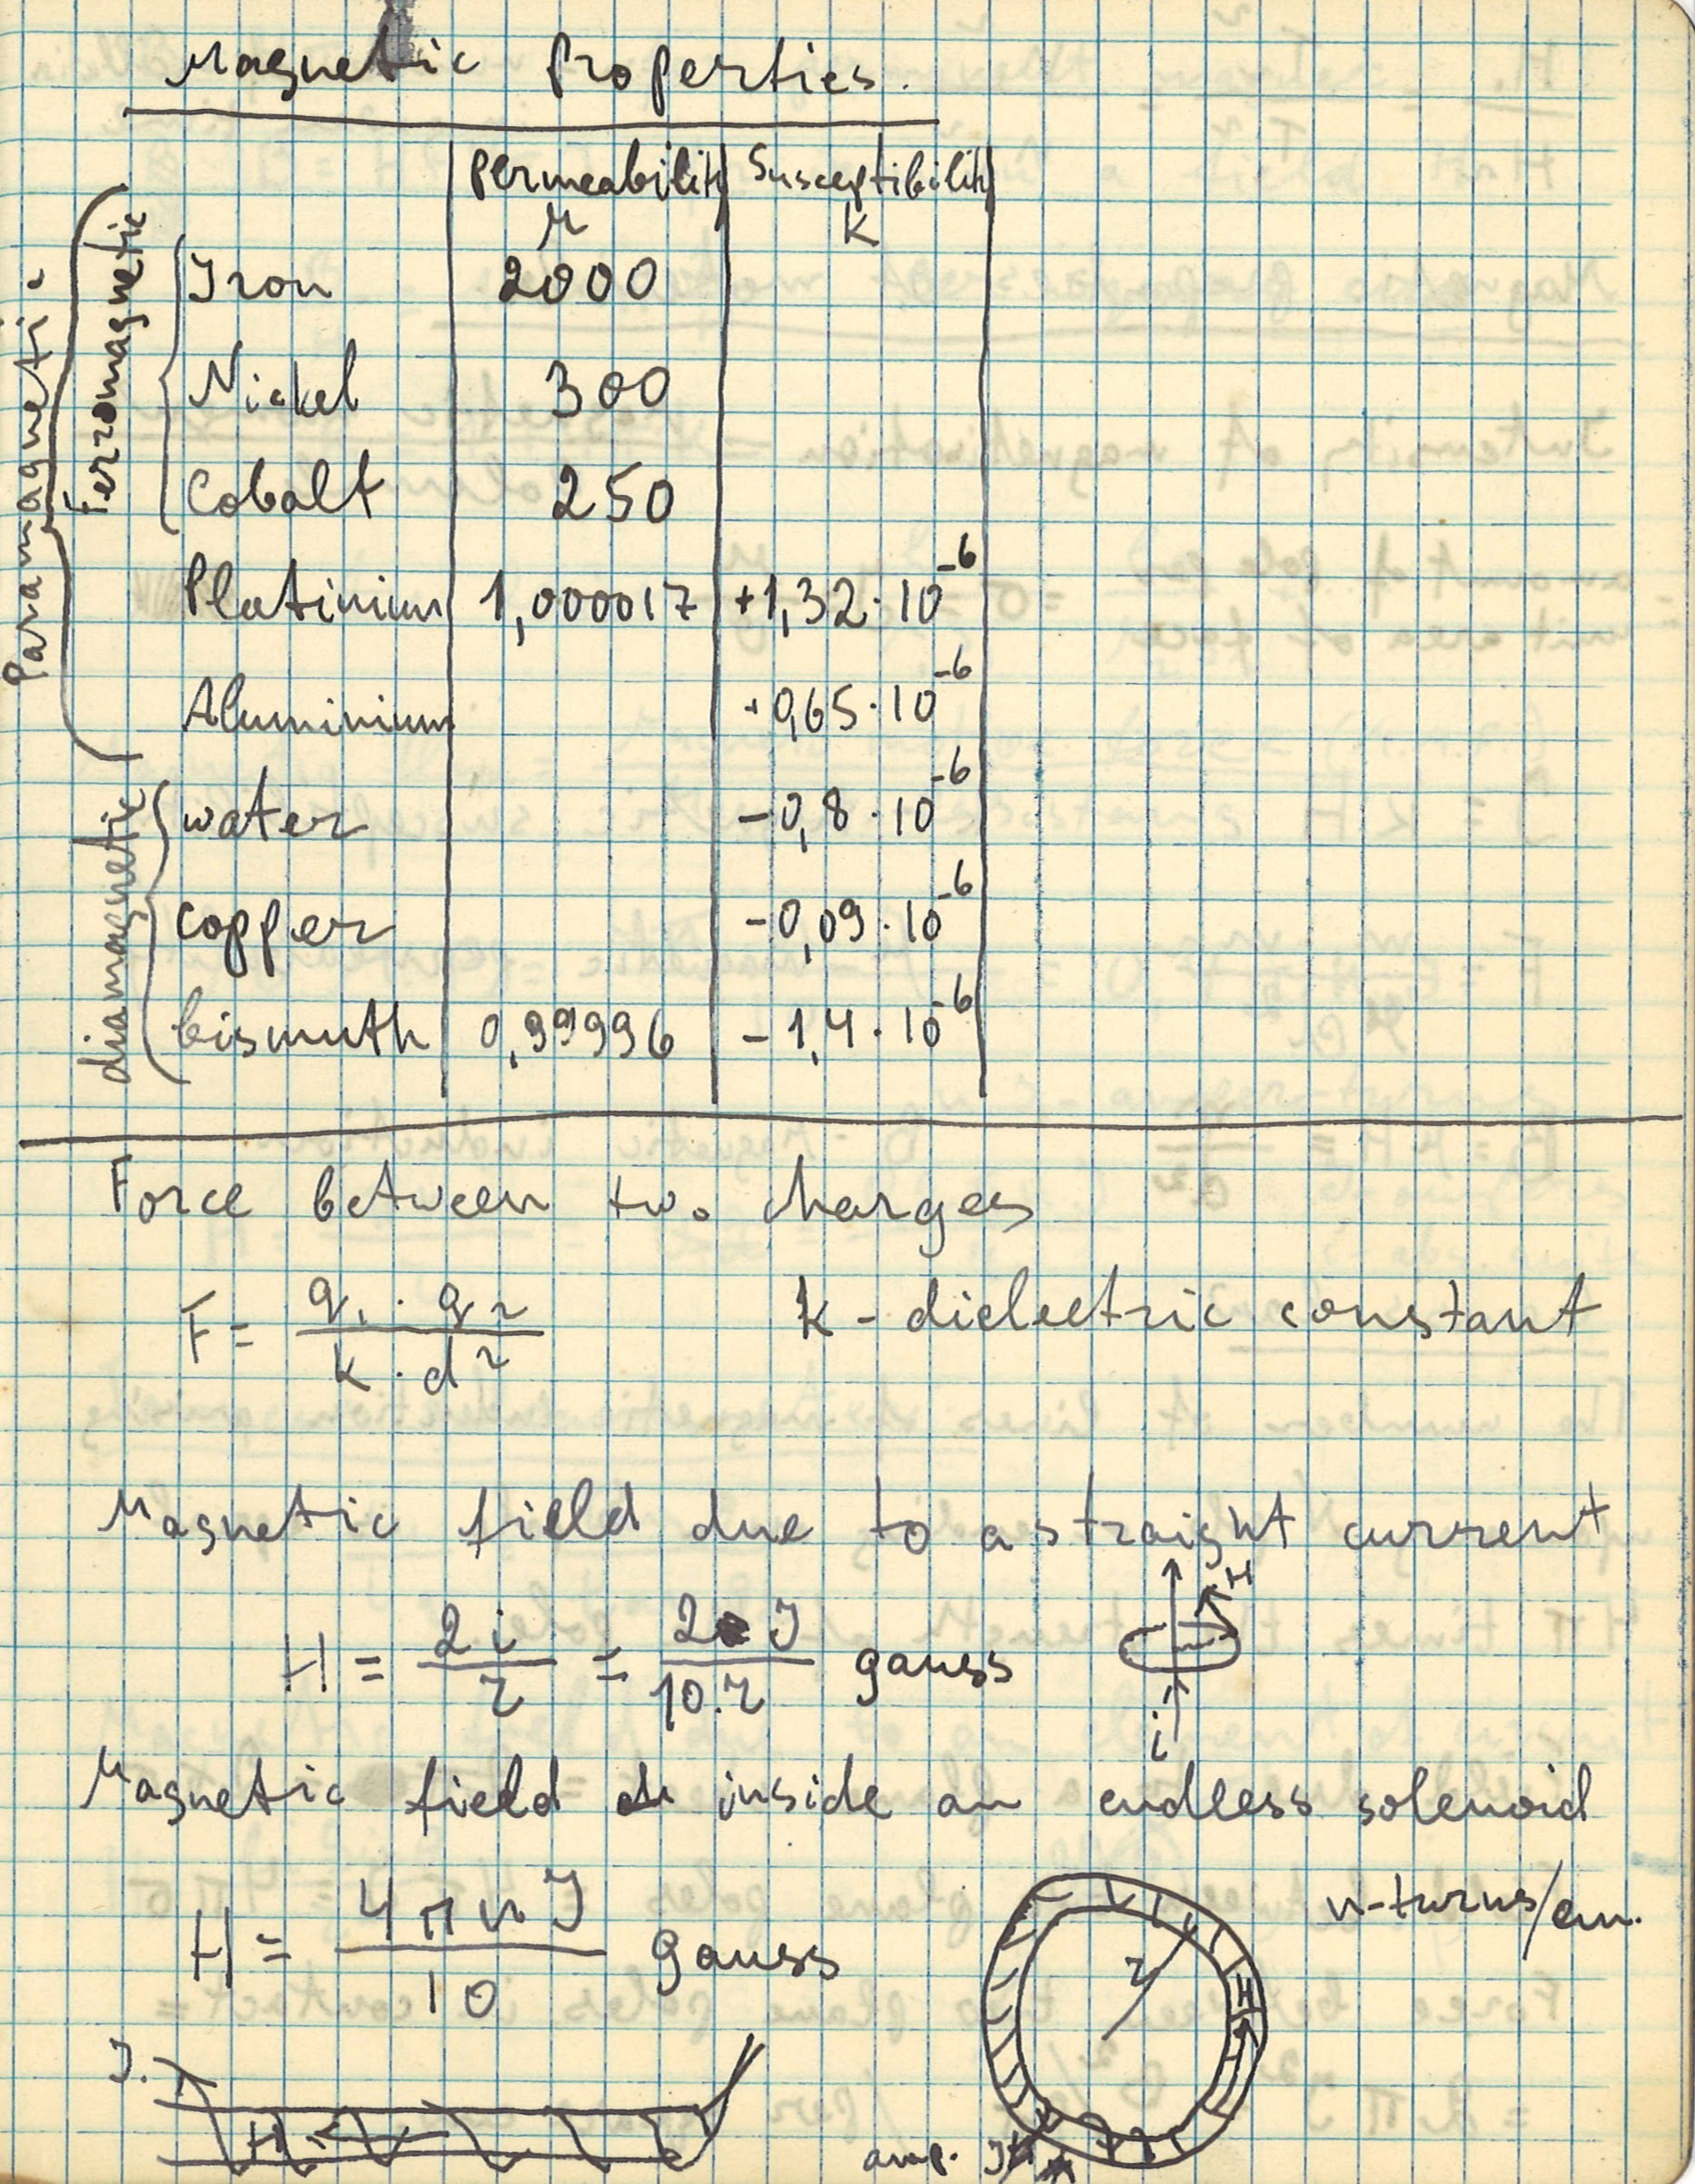 Magnetic Properties.
Permeability Susceptibility
μ K
Paramagnetic
Ferromagnetic
Iron 2000
Nickel 300
Cobalt 250
Platinium 1,000017 +1,32·10⁻⁶
Aluminium +0,65·10⁻⁶
diamagnetic
water -0,8·10⁻⁶
copper -0,09·10⁻⁶
bismuth 0,99996 -1,4·10⁻⁶
Force between two charges
F = q₁·q₂ / k·d² k - dielectric constant
Magnetic field due to a straight current
H = 2i / r = 2 J / 10.r gauss
H
i
Magnetic field inside an endless solenoid
H = 4πnJ / 10 gauss
n-turns/cm.
r
H
J.
H
amp.